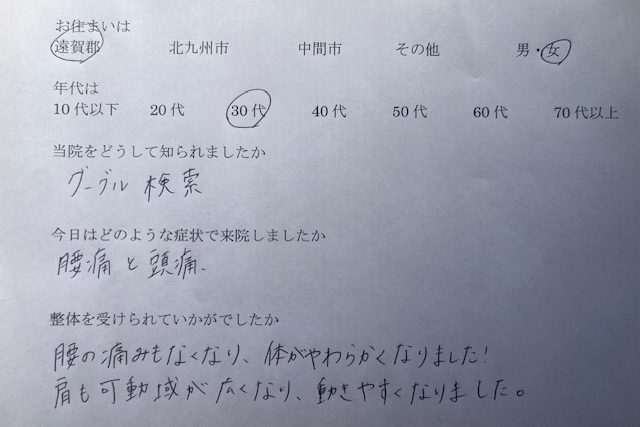 お住まいは
遠賀郡 北九州市 中間市 その他 男・女
年代は
10代以下 20代 30代 40代 50代 60代 70代以上
当院をどうして知られましたか
グーグル検索
今日はどのような症状で来院しましたか
腰痛と頭痛、
整体を受けられていかがでしたか
腰の痛みもなくなり、体がやわらかくなりました！
肩も可動域が広くなり、動きやすくなりました。